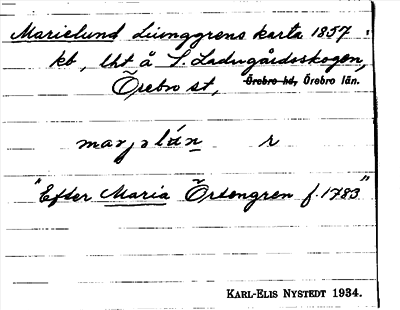 Marielund Ljunggrens karta 1857
kb, lht å S. Ladugårdsskogen,
Örebro st, Örebro hd, Örebro län.
marjəlún r
"Efter Maria Örtengren f. 1783"
KARL-ELIS NYSTEDT 1934.